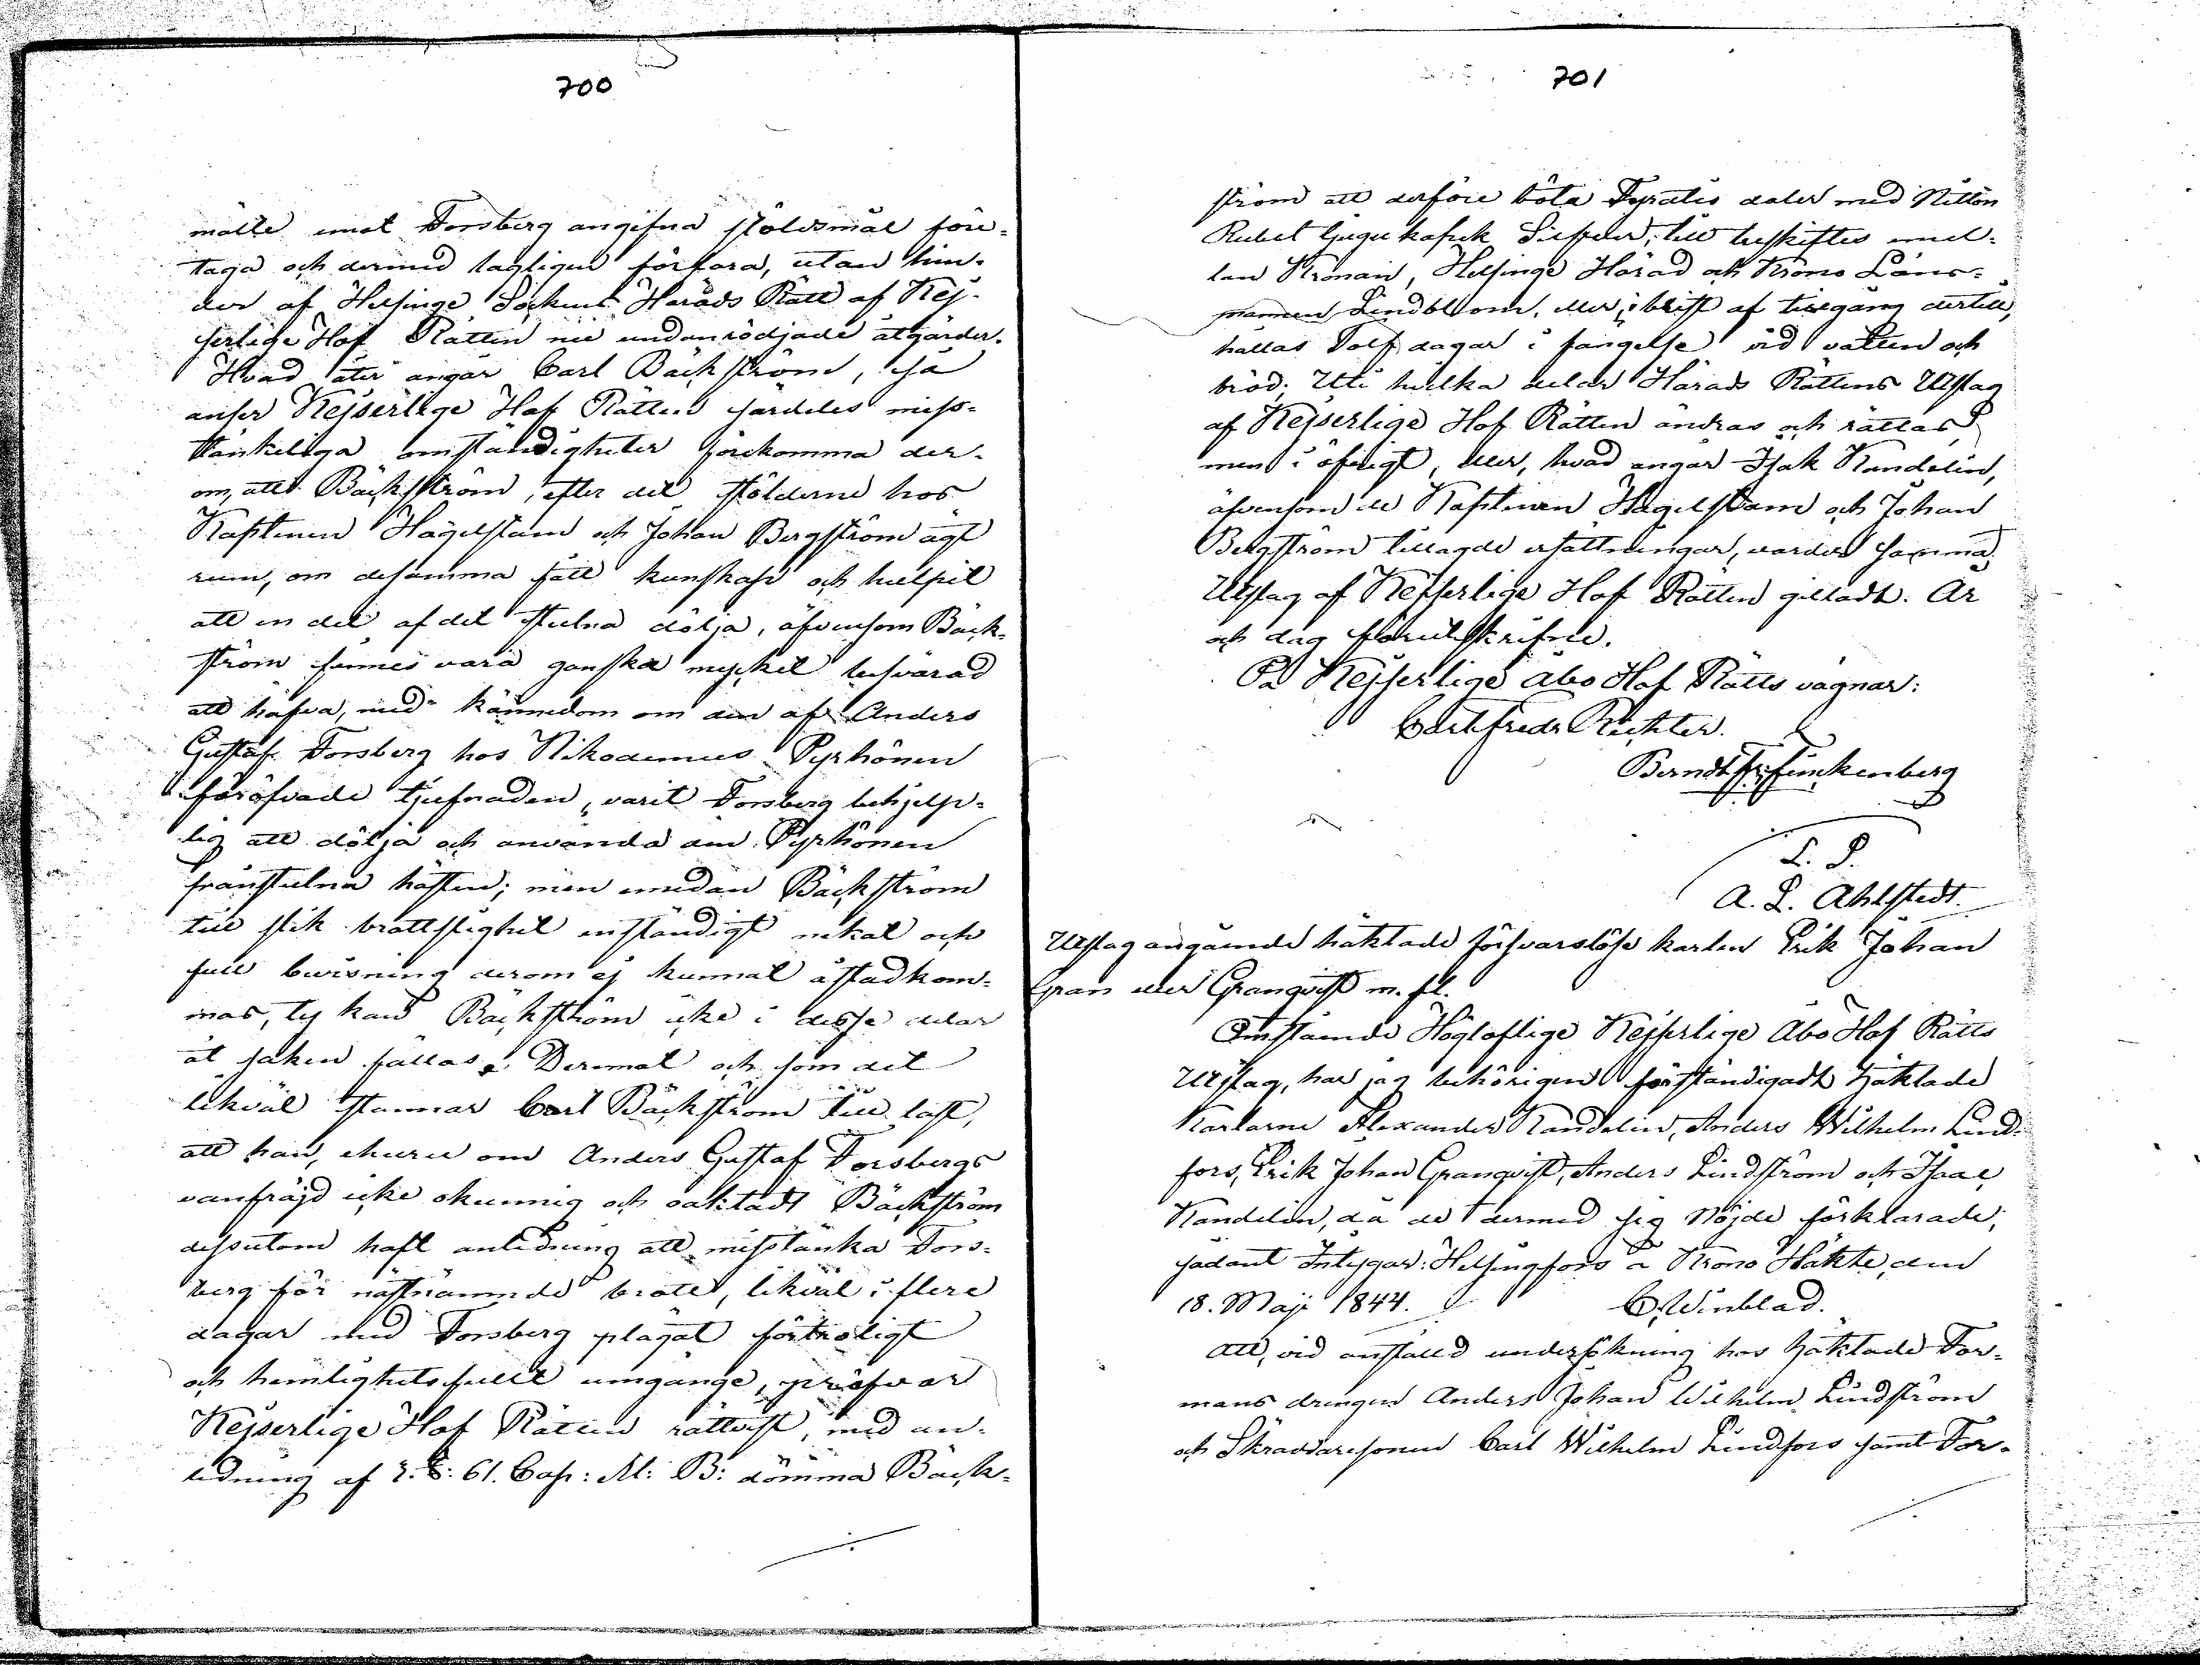 700
målte emot Forsberg angifna stöldsmål före-
taga och dermed lagligen förfara, utan hin-
der af Helsinge Sockens Härads Rätt af Kej-
serlige Hof Rätten nu undanrödjade åtgärder.
Hvad åter angår Carl Bäckström, så
anser Kejserlige Hof Rätten särdeles miss-
tänkeliga omständigheter förekomma der-
om, att Bäckström, efter det stölderne hos
Kaptenen Hagelstam och Johan Bergström ägt
rum, om desamma fått kunskap och hulpit
att en del af det stulna dölja, äfvensom Bäck-
ström finnes vara ganska mycket besvärad
att hafva, med kännedom om den af Anders
Gustaf Forsberg hos Nikodemus Pyrhönen
föröfvade tjufnaden, varit Forsberg behjelp-
lig att dölja och använda den Pyrhönen
frånstulna hästen; men emedan Bäckström
till slik brottslighet enständigt nekat och
full bevisning derom ej kunnat åstadkom-
mas, ty kan Bäckström icke i desse delar
åt saken fällas. Deremot och som det
likväl stannar Carl Bäckström till last,
att han, ehuru om Anders Gustaf Forsbergs
vanfräjd icke okunnig och oaktadt Bäckström
dessutom haft anledning att misstänka Fors-
berg för nästnämnde brott, likväl i flere
dagar med Forsberg plägat förtroligt
och hemlighetsfullt umgänge, pröfvar
Kejserlige Hof Rätten rättvist, med an-
ledning af 3. §: 61. Cap: M: B: dömma Bäck-
701
ström att derföre böta Fyratio daler med Nitton
Rubel tjugu kopek Silfver, till treskiftes emel-
lan Kronan, Helsinge Härad och Krono Läns-
mannen Lindblom, eller, i brist af tillgång dertill,
hållas Tolf dagar i fängelse vid vatten och
bröd; Uti hvilka delar Härads Rättens Utslag
af Kejserlige Hof Rätten ändras och rättas
men i öfrigt, eller, hvad angår Isak Kandelin,
äfvensom de Kaptenen Hagelstam och Johan
Bergström tillagde ersättningar, varder samma
Utslag af Kejserlige Hof Rätten gilladt. År
och dag förutskrifne.
På Kejserlige Åbo Hof Rätts vägnar:
Carl Fredr Richter.
Berndt Fr. Finckenberg
L. S.
A. L. Ahlstedt
Utslag angående häktade försvarslöse karlen Erik Johan
Gran eller Granqvist m. fl.
Omstående Högloflige Kejserlige Åbo Hof Rätts
Utslag, har jag behörigen förständigadt häktade
Karlarne Alexander Kandelin, Anders Wilhelm Lind-
fors, Erik Johan Granqvist, Anders Lindström och Isaac
Kandelin, då de dermed sig nöjde förklarade;
sådant Intygar: Helsingfors å Krono Häkte, den
18. Maji 1844. C. Winblad.
Att, vid anställd undersökning hos häktade For-
mans drengen Anders Johan Wilhelm Lindström
och Skräddaresonen Carl Wilhelm Lindfors samt For-